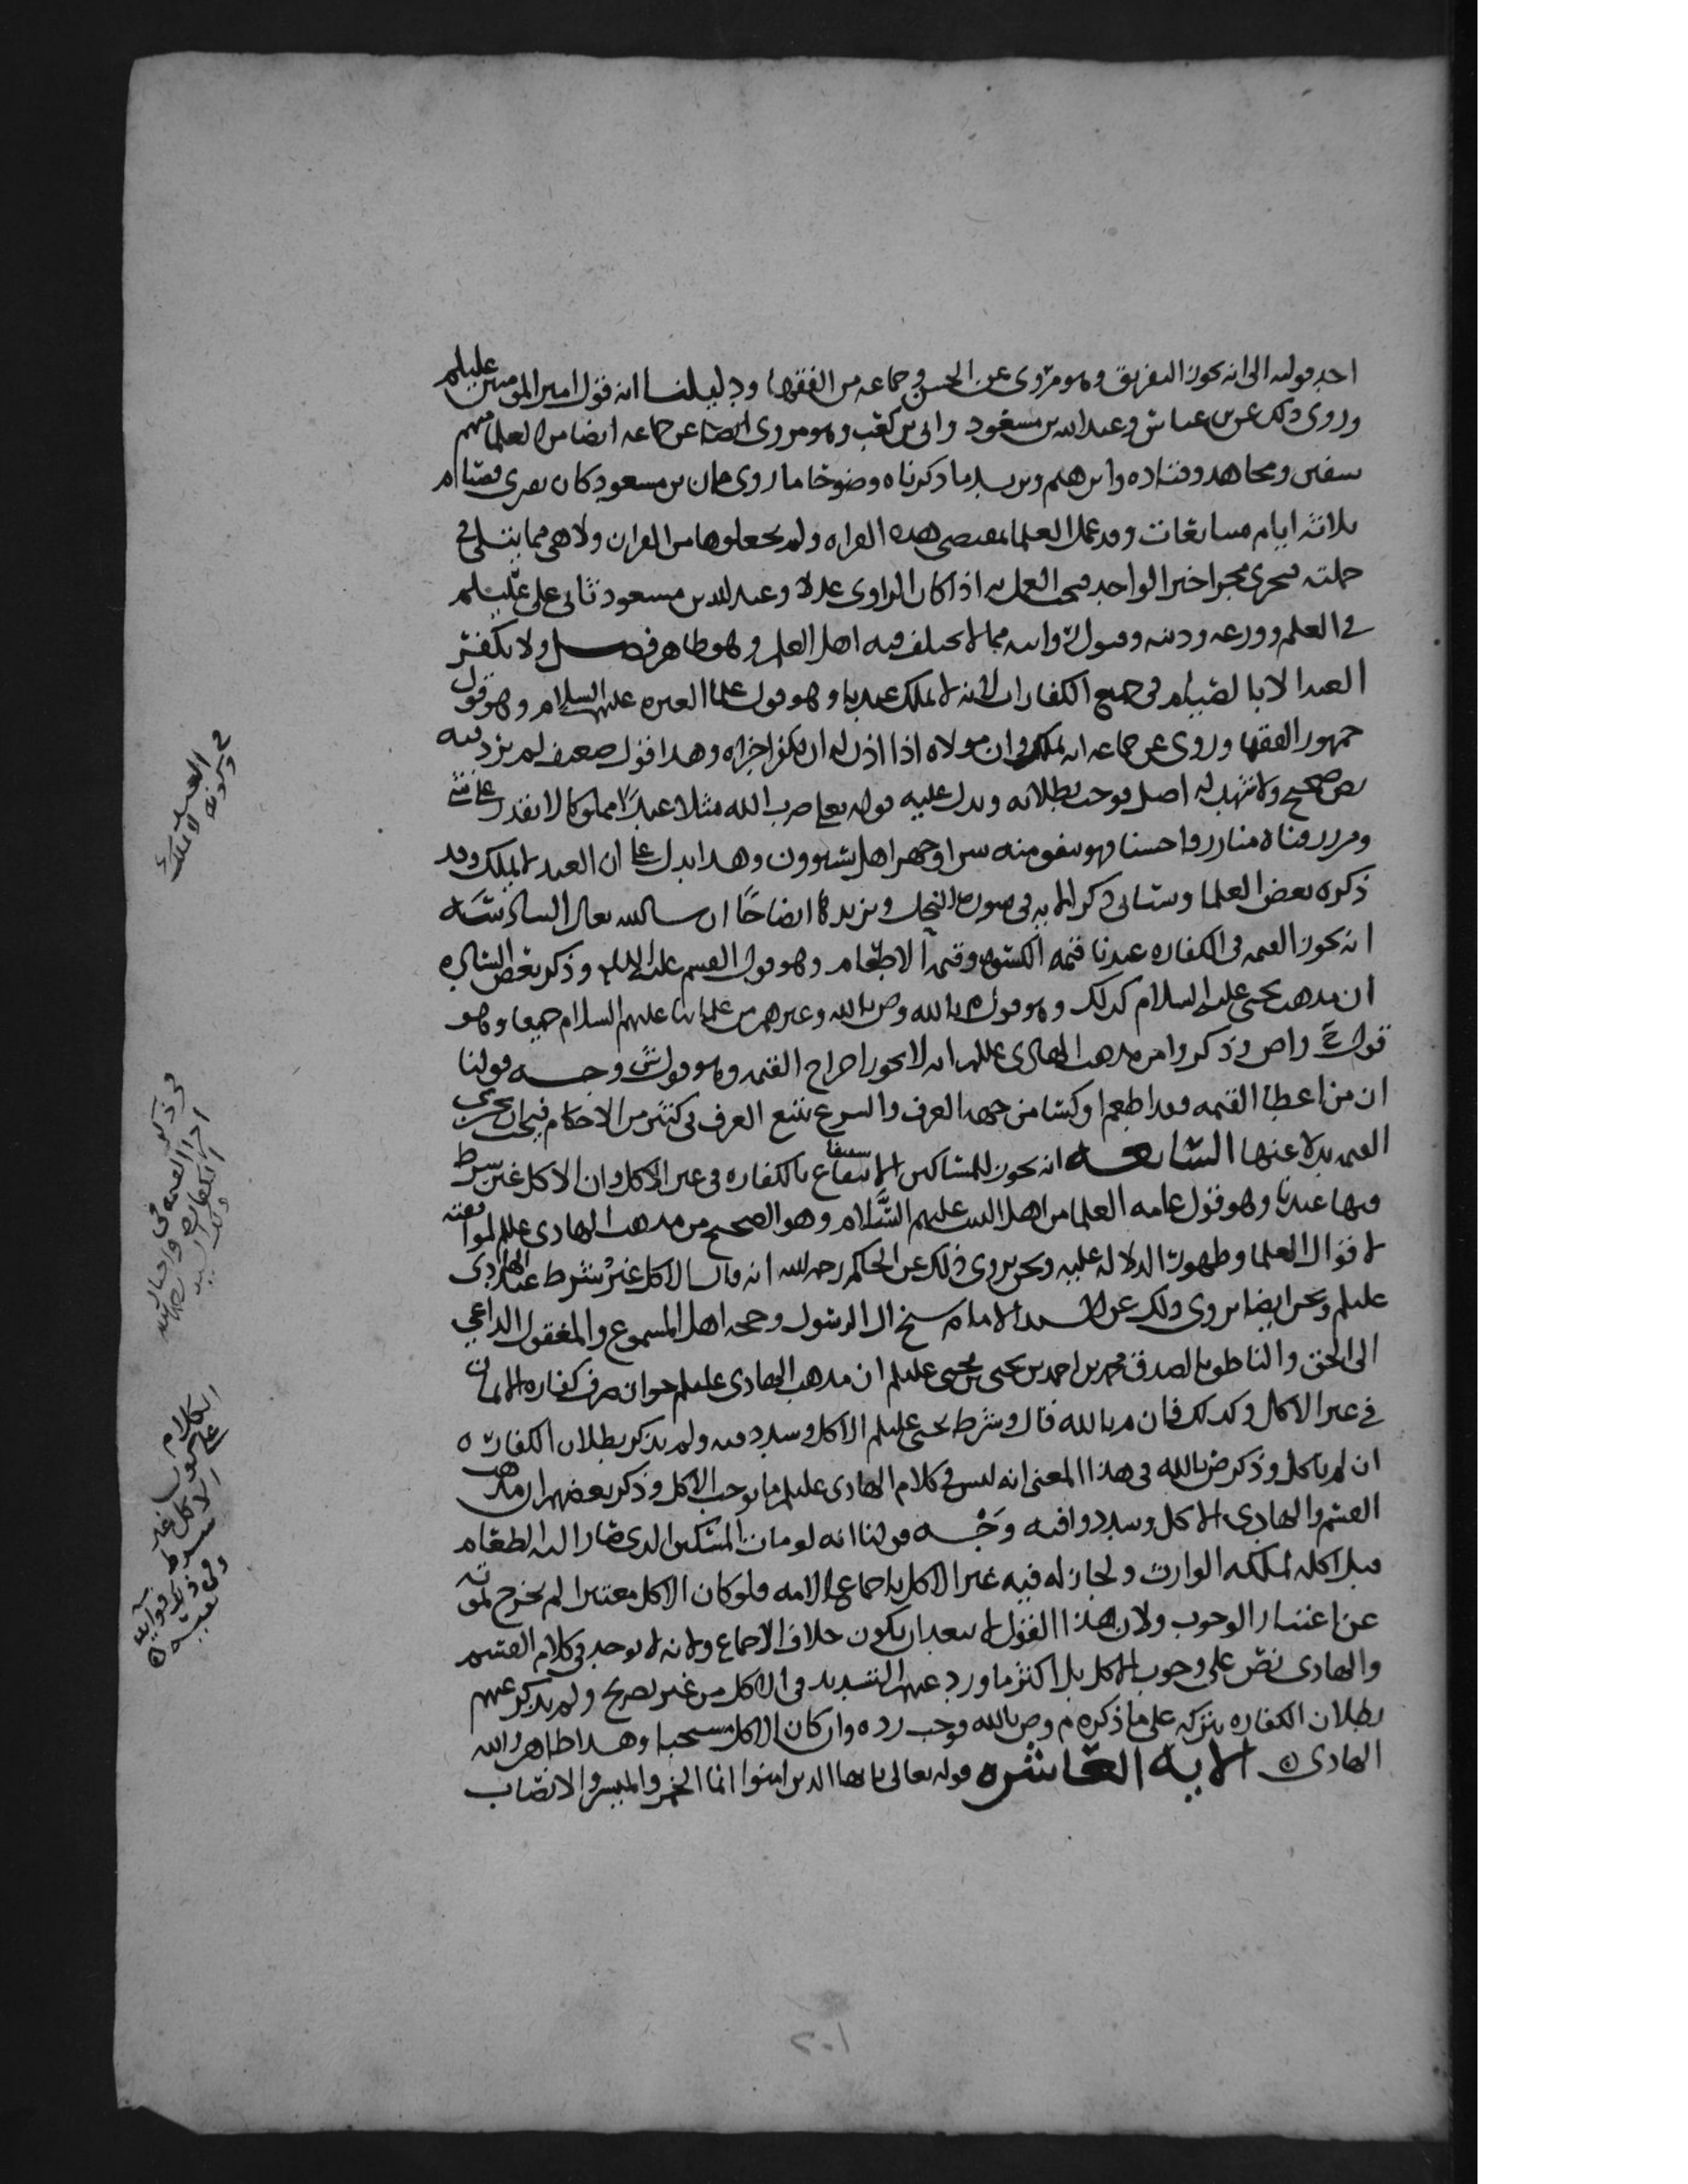 احد قوليه الى انه يجوز التفريق وهو مروي عن الحسن وجماعه من الفقها ودليلنا انه قول امير المومنين عليلم
وروي ذلك عن بن عباس وعبدالله بن مسعود وابي بن كعب وهو مروي ايضا عن جماعه ايضا من العلما منهم
سفين ومجاهد وقتاده وابرهيم ويزيد ما ذكرناه وضوحا ما روي فان بن مسعود كان يقرى فصيام
ثلاثه ايام متتابعات وقد عمل العلما بمقتضى هذه القراه ولم يجعلوها من القران ولا هي مما يتلى في
جملته فتجري مجرا خبر الواحد فيجب العمل به اذا كان الراوي عدلا وعبدالله بن مسعود ثاني علي عليلم
في العلم وورعه ودينه وقبول روايته مما لا يختلف فيه اهل العلم وهو ظاهر فصل ولا يكفر
العبد الا بالصيام في جميع الكفارات لانه لا يملك عندنا وهو قول علما العتره عليهم السلام وهو قول
جمهور الفقها وروي عن جماعه انه يملك وان مولاه اذا اذن له ان يكفر اجزاه وهذا قول ضعيف لم يرد فيه
نص صحيح ولا شهد له اصل فوجب بطلانه ويدل عليه قوله تعلى ضرب الله مثلا عبدا مملوكا لا يقدر على شي
ومن رزقناه منا رزقا حسنا فهو ينفق منه سرا وجهرا هل يستوون وهذا يدل على ان العبد لا يملك وقد
ذكره بعض العلما وسياتي ذكر الايه في سوره النحل ونزيده ايضاحا ان سا الله تعالى السادسه
انه يجوز القيمه في الكفاره عندنا قيمه الكسوه وقيمه الاطعام وهو قول القسم عليه السلام وذكر بعض الساده
ان مذهب يحيى عليه السلام كذلك وهو قول م بالله وص بالله وغيرهم من علمائنا عليهم السلام جميعا وهو
قول ح واص وذكروا من مذهب الهادي عليلم انه لا يجوز اخراج القيمه وهو قول ش وجه قولنا
ان من اعطا القيمه فقد اطعم او كسا من جهه العرف والشرع يتبع العرف في كثير من الاحكام فيجب ان تجزي
القيمه بدلا عنها السابعه انه يجوز للمساكين الانتفاع بالكفاره في غير الاكل وان الاكل غير شرط
فيها عندنا وهو قول عامه العلما من اهل البيت عليهم السلام وهو الصحيح من مذهب الهادي عليلم لموافقته
لاقوال العلما وظهور الدلاله عليه ونحن نروي ذلك عن الحاكم رحمه الله انه قال الاكل غير شرط عند الهادي
عليلم ونحن ايضا نروي ذلك عن السيد الامام شيخ ال الرسول وحجه اهل المسموع والمعقول الداعي
الى الحق والناطق بالصدق محمد بن احمد بن يحيى بن يحيى عليلم ان مذهب الهادي عليلم جواز صرف كفاره الايمان
في غير الاكل وكذلك فان م بالله قال وشرط يحيى عليلم الاكل وشدد فيه ولم يذكر بطلان الكفاره
ان لم ياكل وذكر ض بالله في هذا المعنى انه ليس في كلام الهادي عليلم ما يوجب الاكل وذكر بعضهم ان مذهب
القسم والهادي الاكل وشددوا فيه وجه قولنا انه لو مات المسكين الذي صار اليه الطعام
قبل اكله لملكه الوارث ولجاز له فيه غير الاكل باجماع الامه فلو كان الاكل معتبرا لم يخرج لموته
عن اعتبار الوجوب ولان هذا القول لا يبعد ان يكون خلاف الاجماع ولانه لا يوجد في كلام القسم
والهادي نص على وجوب الاكل بل اكثر ما ورد عنهم التشديد في الاكل من غير تصريح ولم يذكر عنهم
بطلان الكفاره بتركه على ما ذكره م وص بالله فوجب رده وان كان الاكل مستحبا وهذا ظاهر
الهادي الايه العاشره قوله تعالى يا ايها الذين امنوا انما الخمر والميسر والانصاب
في كون العبد لا يملك
في ذكر اجزا القيمه في الكفاره
الكلام على كون الاكل غير شرط
٢٠١